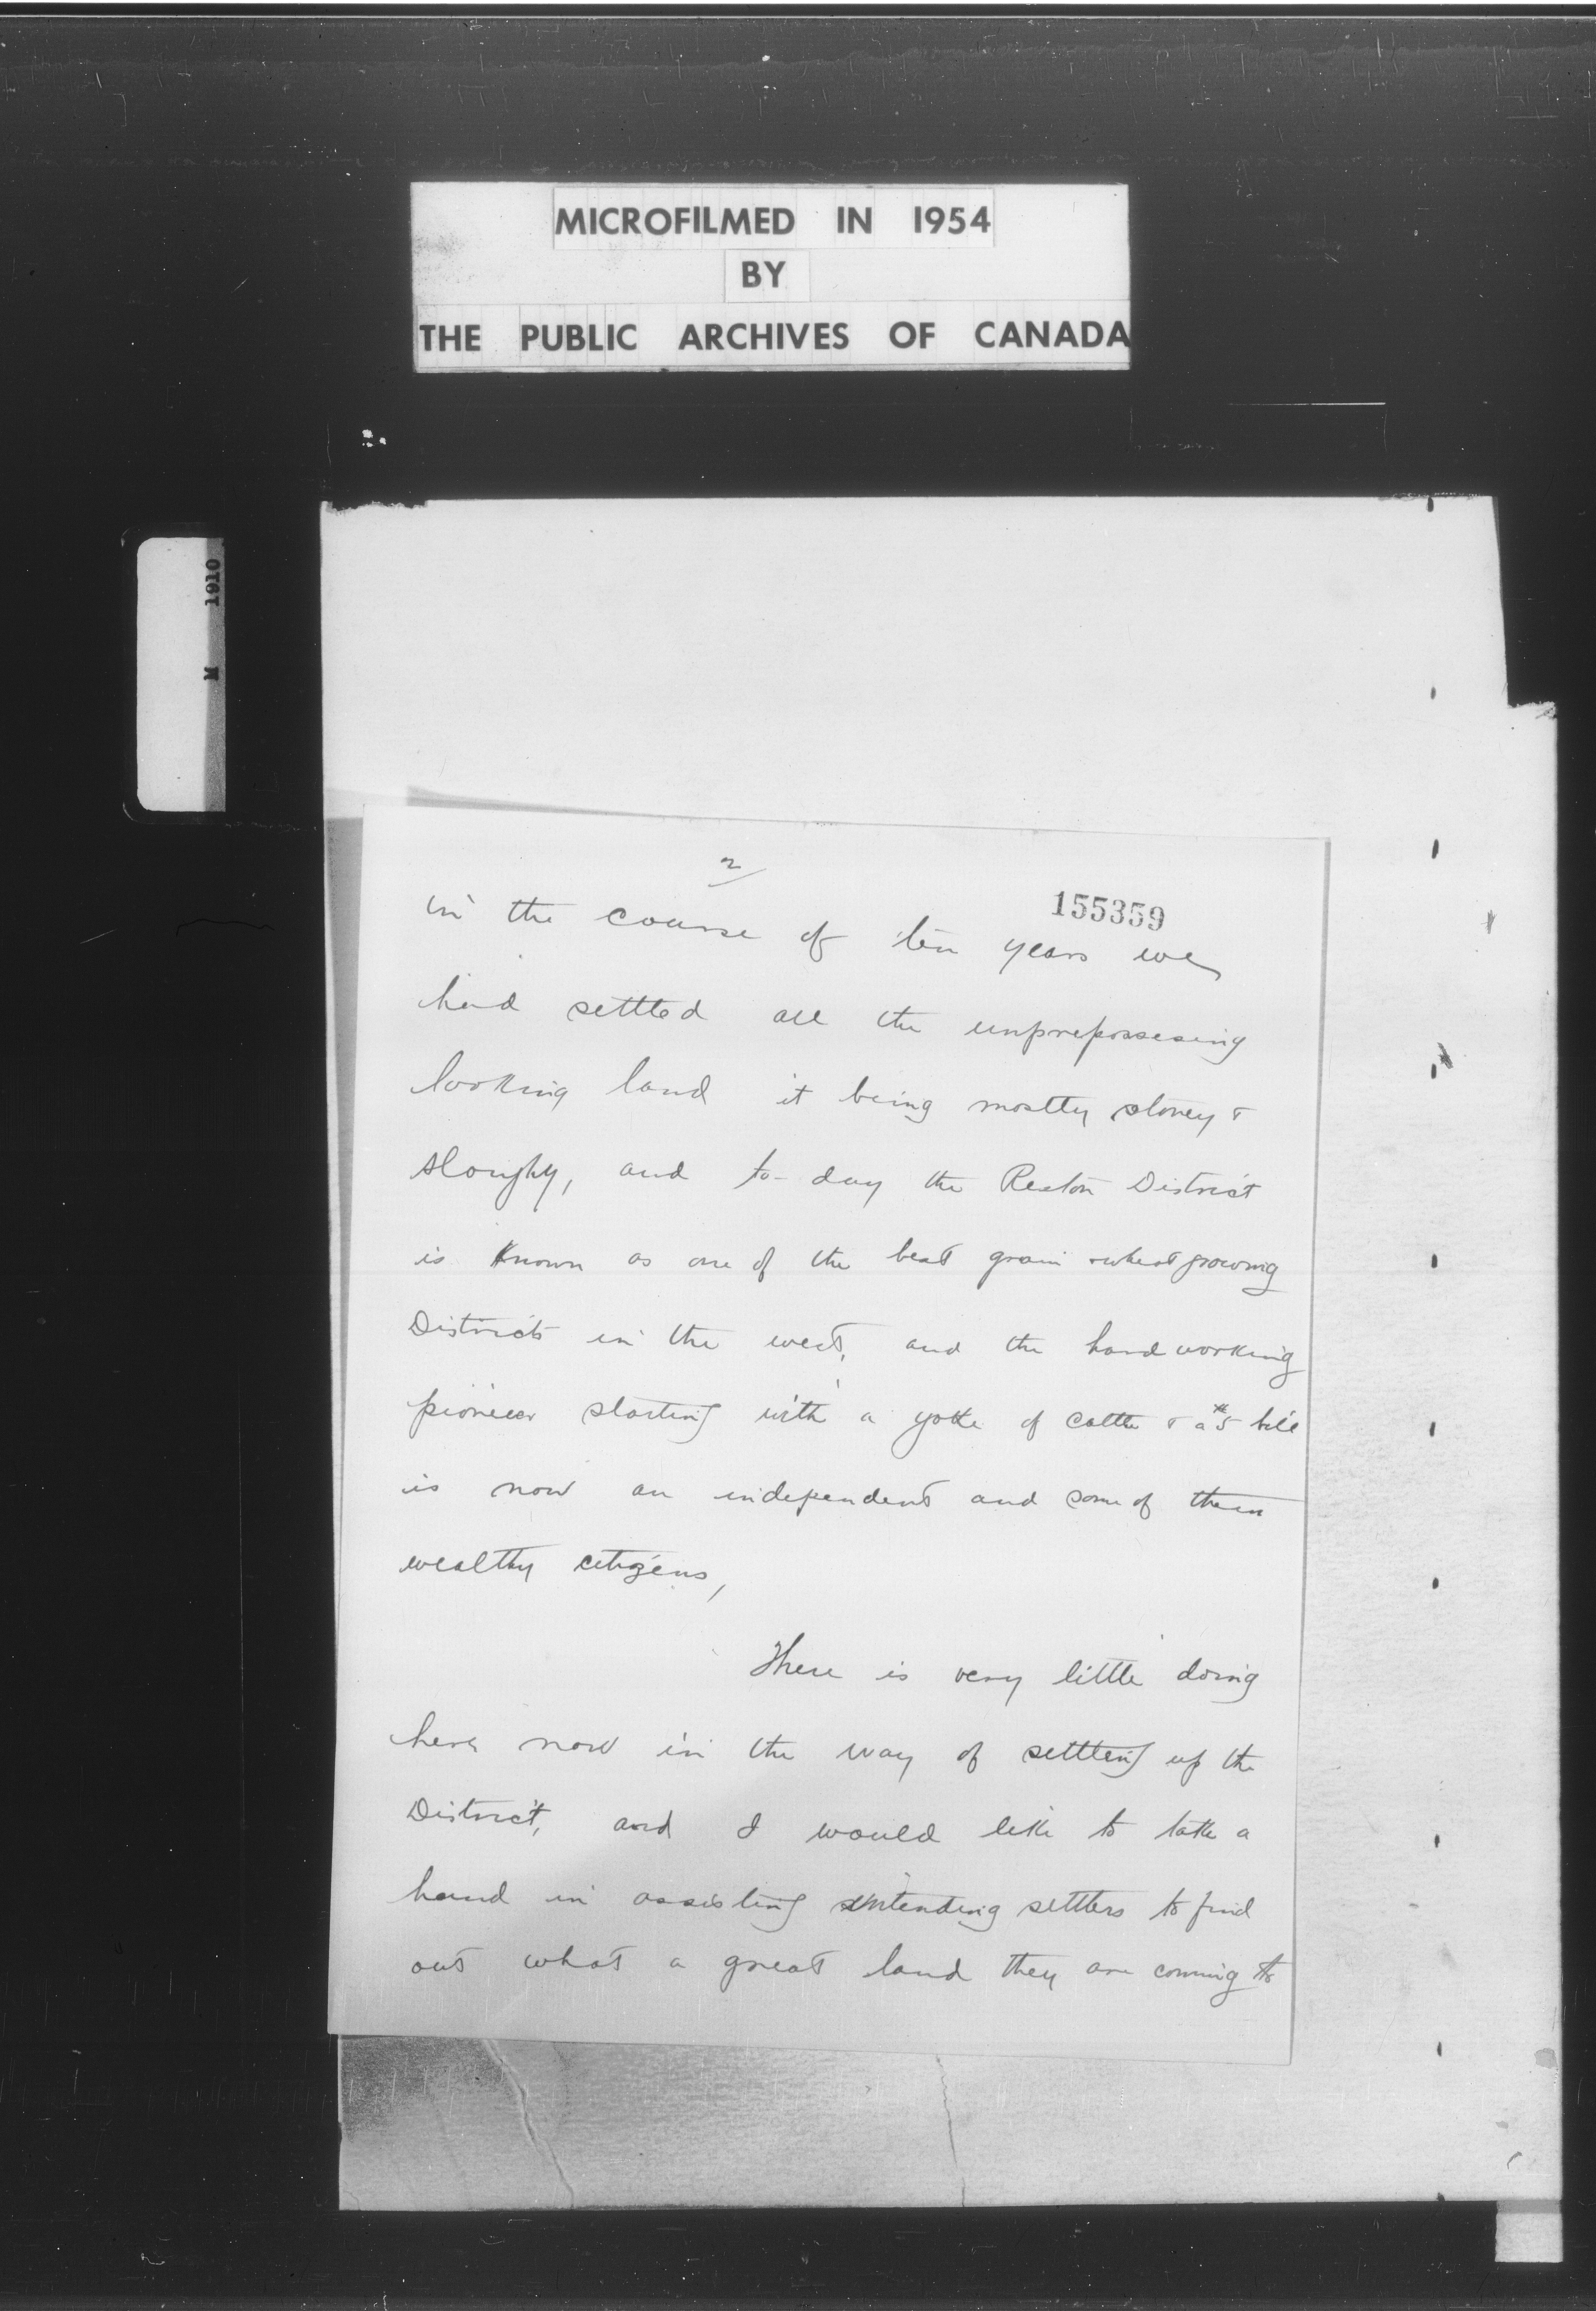 MICROFILMED IN 1954
BY
THE PUBLIC ARCHIVES OF CANADA
M 1910
2
155359
in the course of ten years we
had settled all the unprepossesing
looking land it being mostly stoney &
sloughy, and to-day the Reston District
is known as one of the best grain & wheat growing
Districts in the west, and the hard working
pioneer starting with a yoke of cattle & a $5 bill
is now an independent and some of them
wealthy citizens,
There is very little doing
here now in the way of settling up the
District, and I would like to take a
hand in assisting intending settlers to find
out what a great land they are coming to